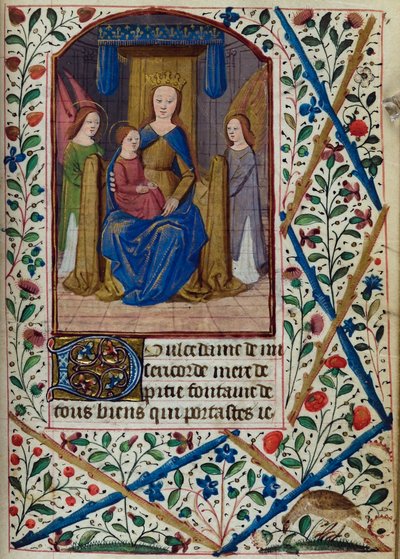 Doulce dame de mi
sericorde mere de
pitie fontaine de
tous biens qui portastes ie